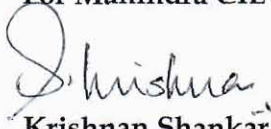 For Mahindra CIE
S. Krishna
Krishnan Shankar